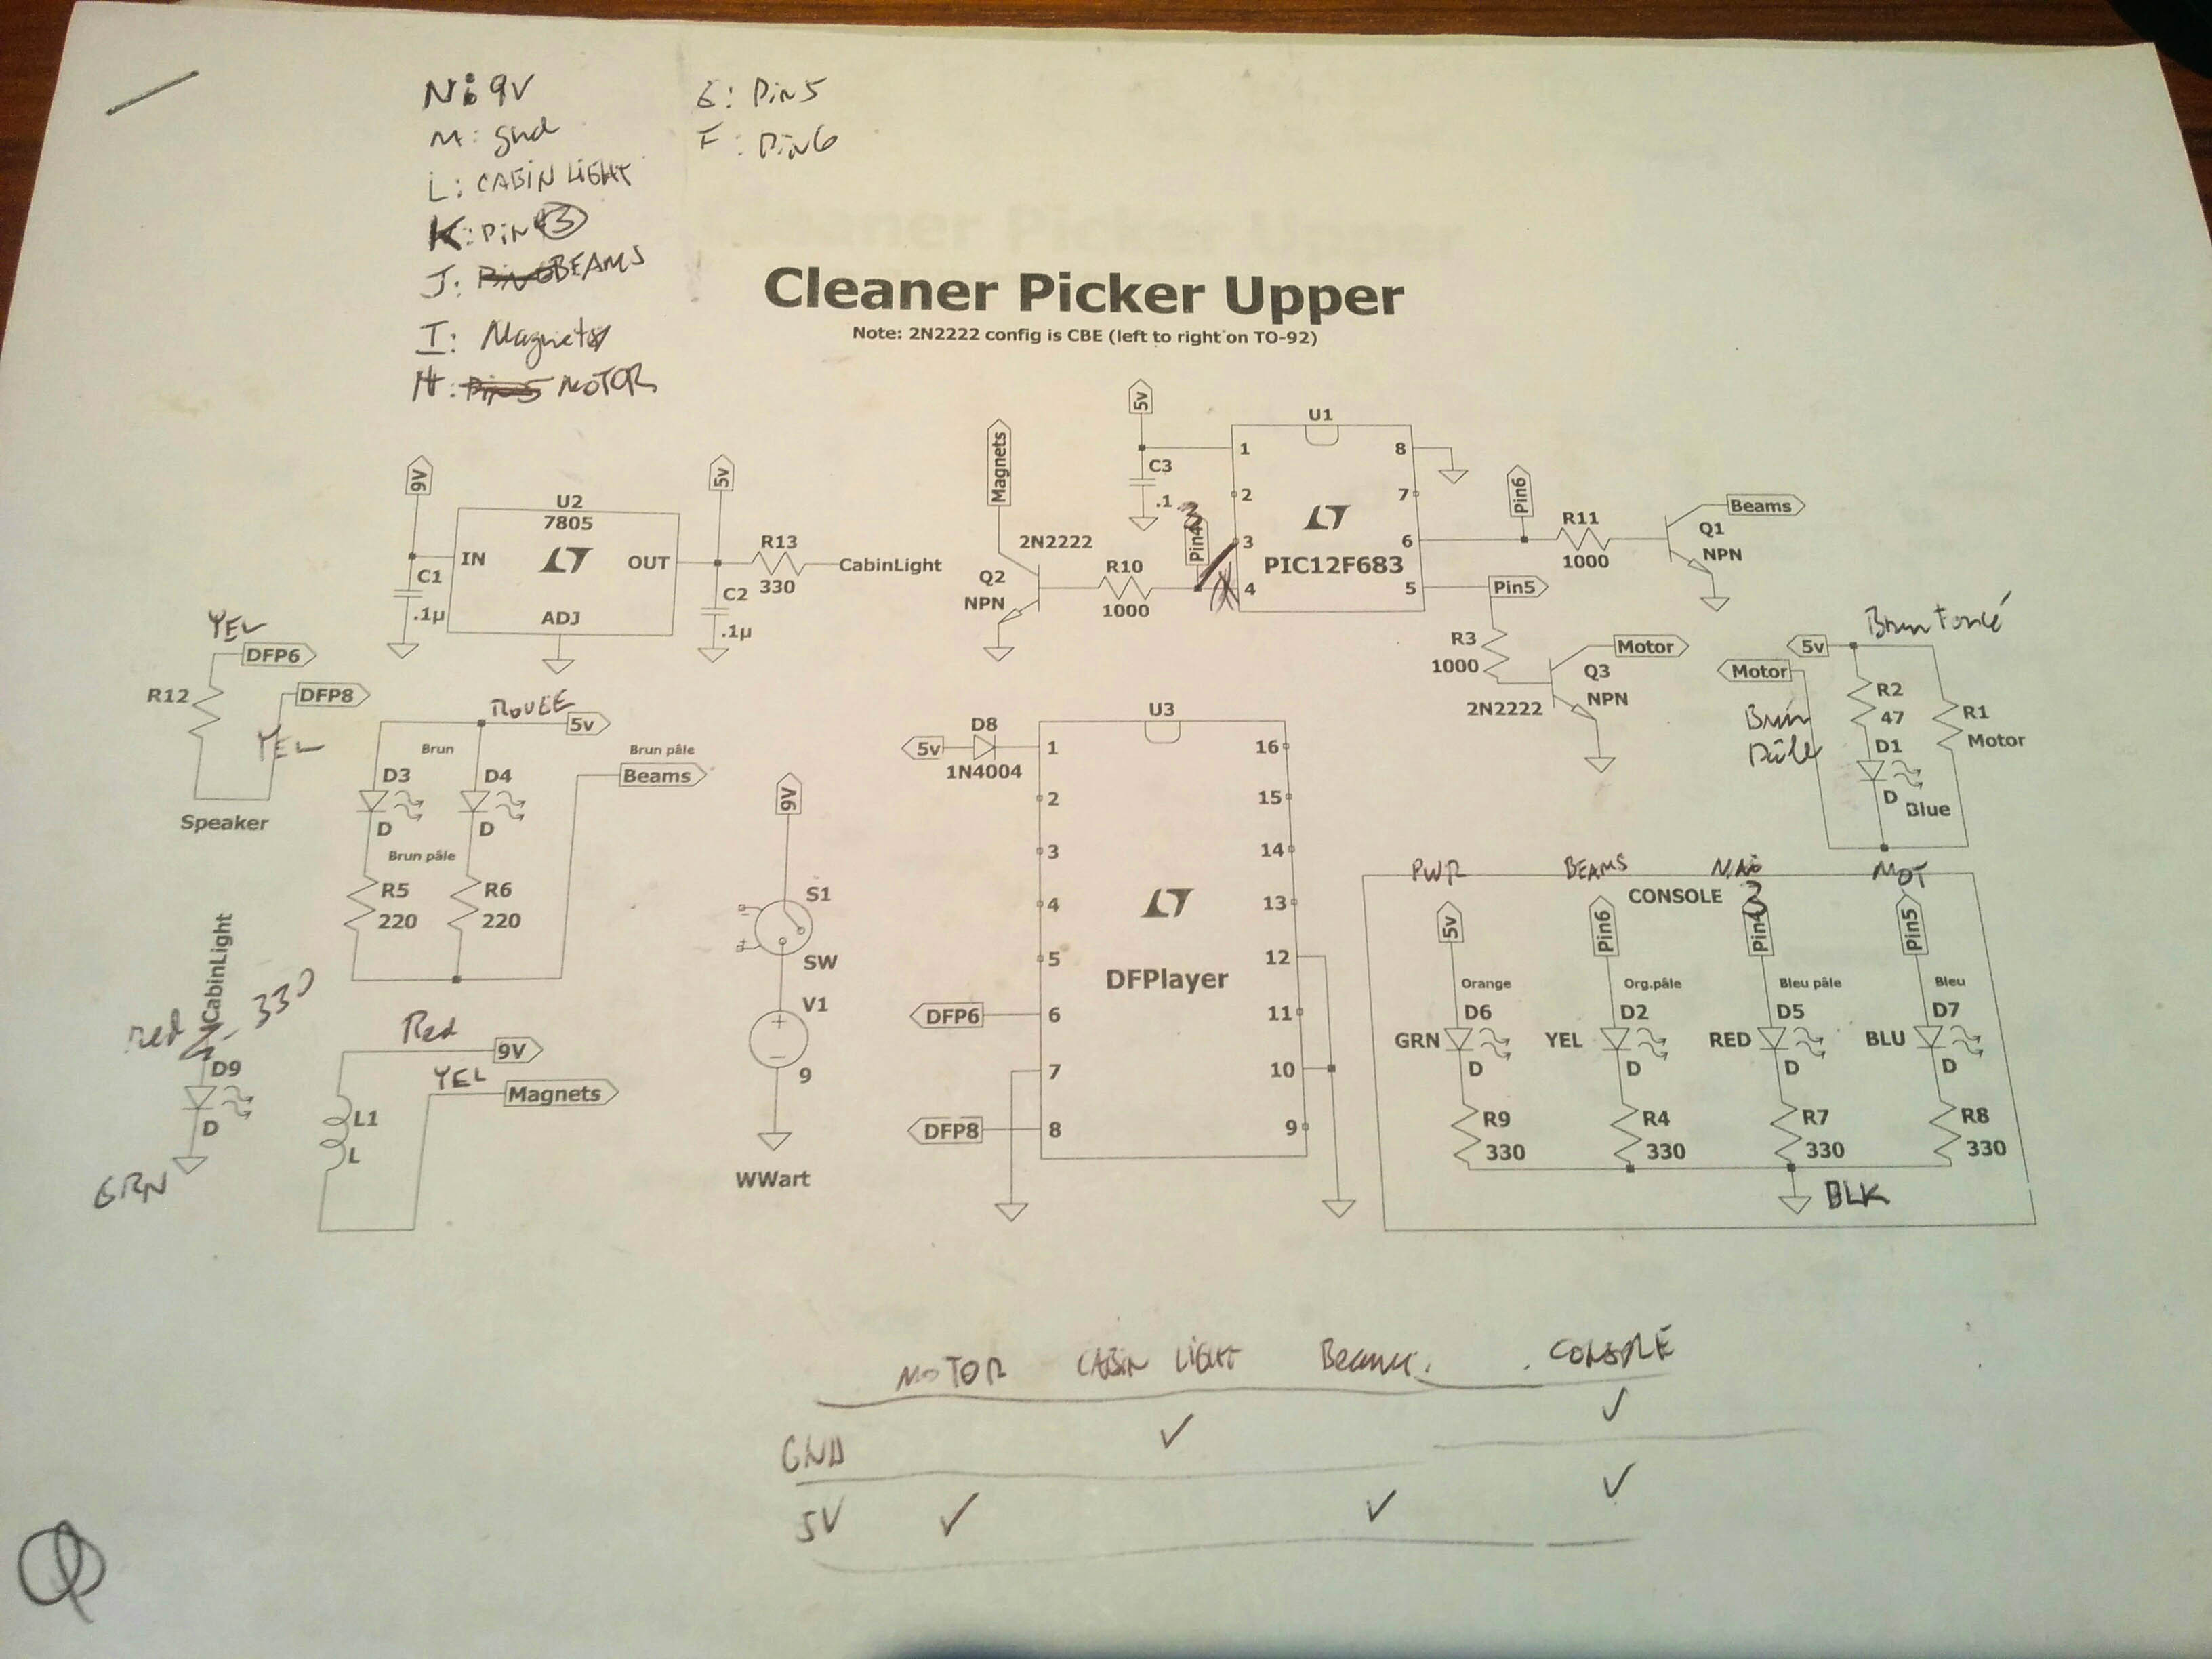 N: 9V
M: gnd
L: CABIN LIGHT
K: Pin 3
J: BEAMS
I: Magnets
H: MOTOR
G: Pin5
F: Pin6
Cleaner Picker Upper
Note: 2N2222 config is CBE (left to right on TO-92)
9V
U2
7805
IN
OUT
ADJ
C1
.1µ
5v
R13
330
CabinLight
C2
.1µ
Magnets
2N2222
Q2
NPN
R10
1000
Pin4
3
5v
C3
.1
U1
1
2
3
4
8
7
6
5
PIC12F683
Pin6
R11
1000
Beams
Q1
NPN
Pin5
R3
1000
Motor
Q3
NPN
2N2222
Brun Foncé
5v
Motor
Brun
Pâle
R2
47
D1
D
Blue
R1
Motor
YEL
DFP6
R12
DFP8
YEL
Speaker
ROUGE
5v
Brun
Brun pâle
Beams
D3
D
D4
D
Brun pâle
R5
220
R6
220
9V
S1
SW
V1
9
WWart
U3
5v
D8
1N4004
1
2
3
4
5
6
7
8
16
15
14
13
12
11
10
9
DFPlayer
DFP6
DFP8
CabinLight
Red
330
D9
D
GRN
Red
9V
YEL
Magnets
L1
L
PWR
BEAMS
MAG
MOT
CONSOLE
5v
Pin6
Pin4
3
Pin5
Orange
Org.pâle
Bleu pâle
Bleu
D6
D2
D5
D7
GRN
YEL
RED
BLU
D
D
D
D
R9
330
R4
330
R7
330
R8
330
BLK
MOTOR CABIN LIGHT Beams CONSOLE
GND ✓ ✓
5V ✓ ✓ ✓